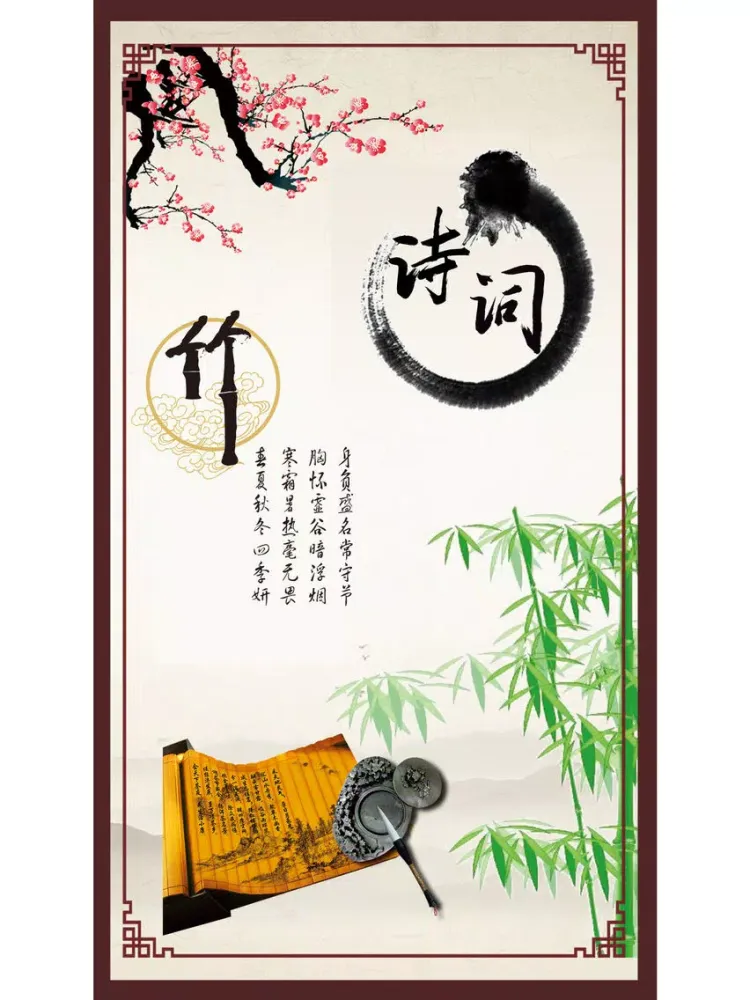 诗词
竹
身负盛名常守节
胸怀虚谷暗浮烟
寒霜暑热毫无畏
春夏秋冬四季妍